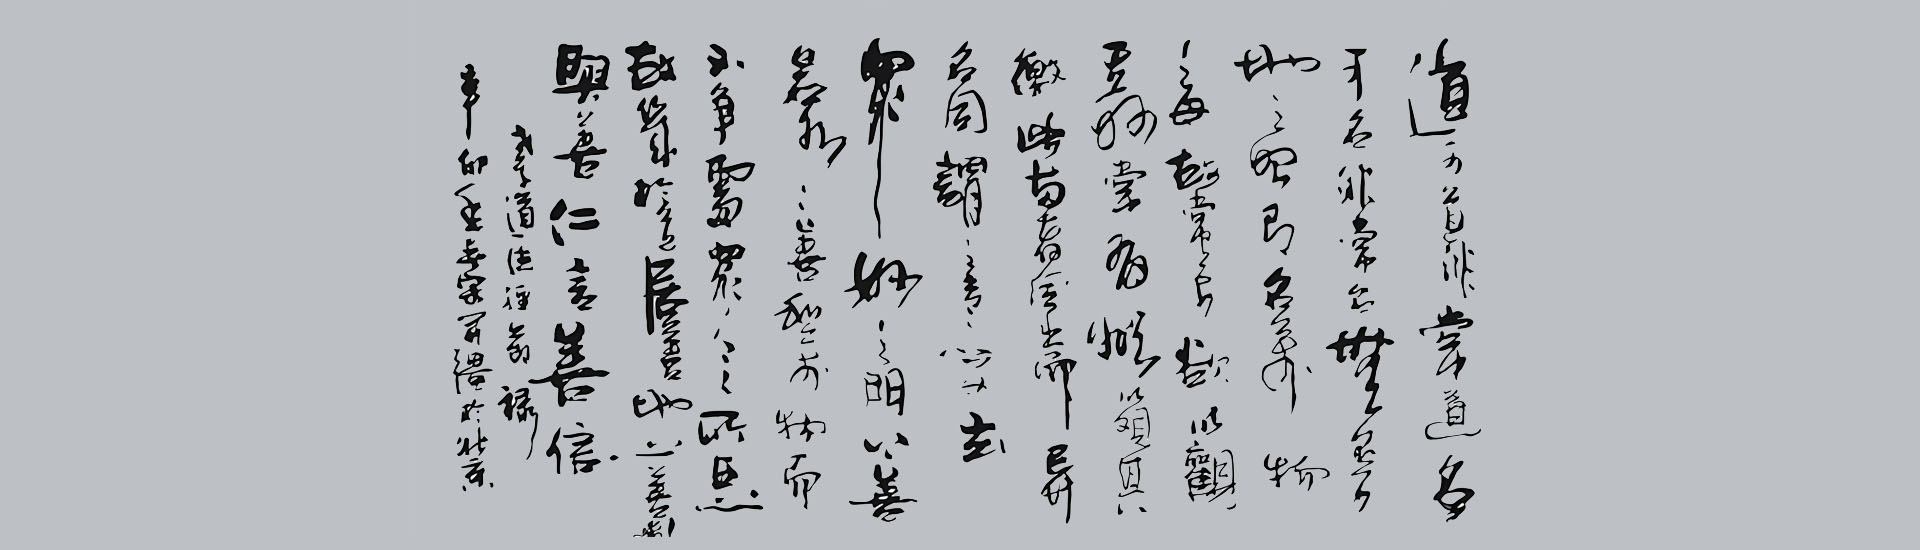 道可道非常道名
可名非常名無名天
地之始有名萬物
之母故常無欲以觀
其妙常有欲以觀其
徼此兩者同出而異
名同謂之玄之又玄
眾妙之門上善
若水水善利萬物而
不争處眾人之所惡
故幾於道居善地心善淵
與善仁言善信
老子道德經節録
辛卯年 於北京